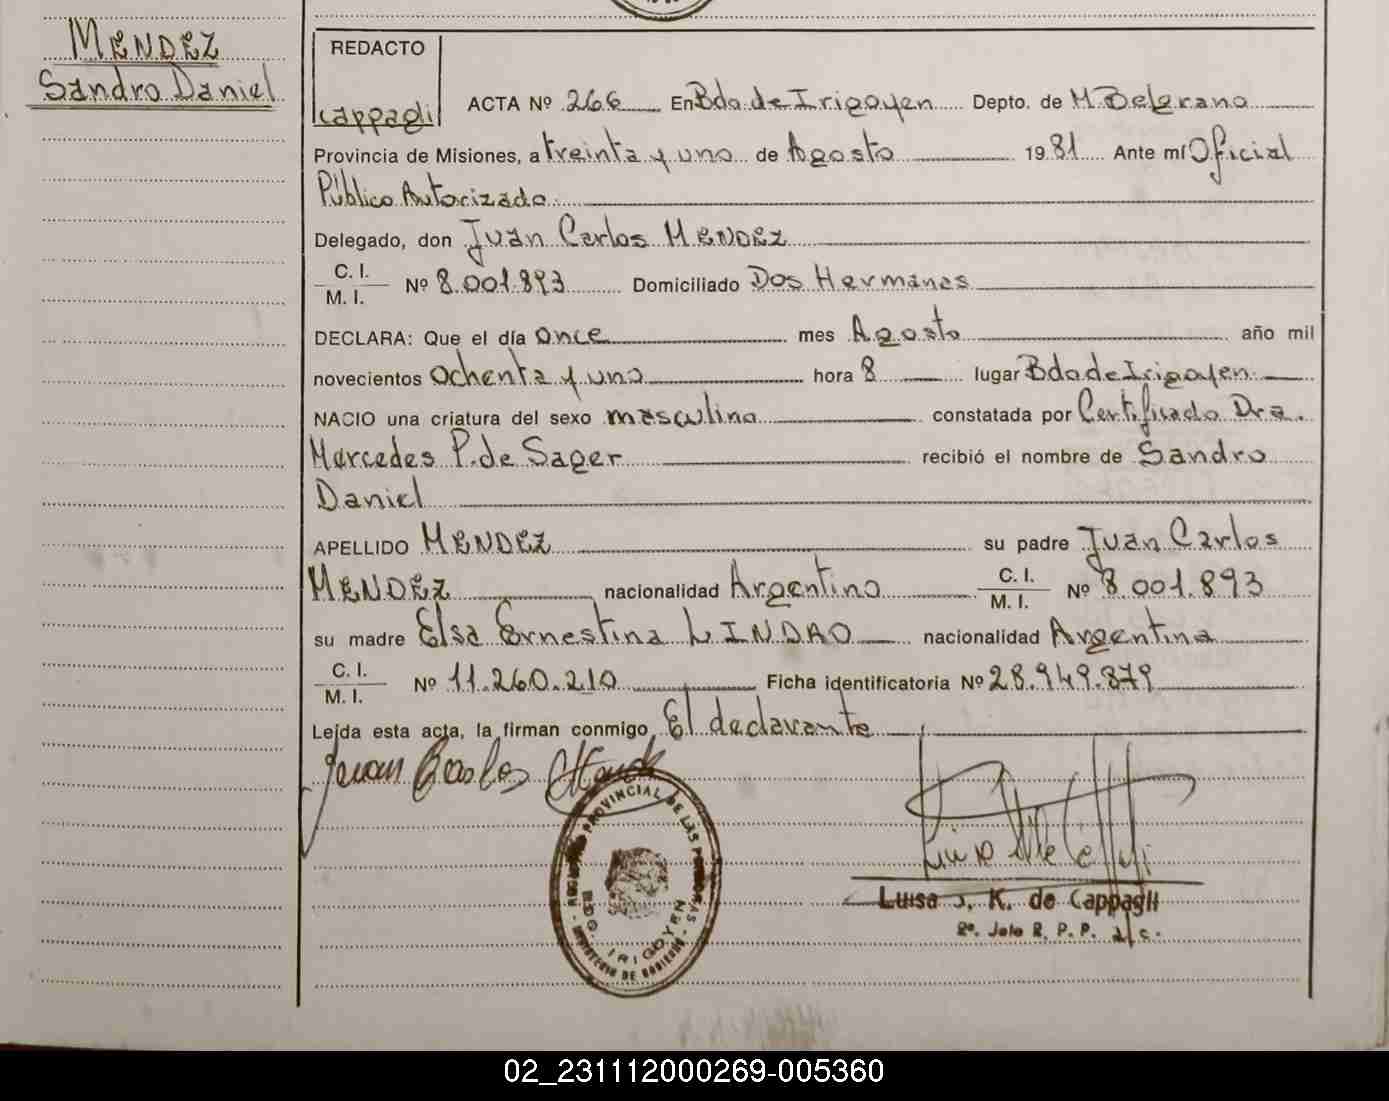 MENDEZ
Sandro Daniel
REDACTO
Cappagli
ACTA Nº 266 En Bdo de Irigoyen Depto. de M. Belgrano
Provincia de Misiones, a treinta y uno de Agosto 1981 Ante mí Oficial
Público Autorizado
Delegado, don Juan Carlos MENDEZ
C. I.
M. I.
Nº 8.001.893 Domiciliado Dos Hermanas
DECLARA: Que el día once mes Agosto año mil
novecientos ochenta y uno hora 8 lugar Bdo de Irigoyen
NACIO una criatura del sexo masculino constatada por Certificado Dra.
Mercedes P. de Sager recibió el nombre de Sandro
Daniel
APELLIDO MENDEZ su padre Juan Carlos
MENDEZ nacionalidad Argentino C. I.
M. I.
Nº 8.001.893
su madre Elsa Ernestina LINDAO nacionalidad Argentina
C. I.
M. I.
Nº 11.260.210 Ficha identificatoria Nº 28.949.879
Leida esta acta, la firman conmigo El declarante
Juan Carlos
PROVINCIAL DE LAS PERSONAS
BDO. IRIGOYEN
MINISTERIO DE GOBIERNO
Luisa J. K. de Cappagli
2º. Jefe R. P. P. a/c.
02_231112000269-005360